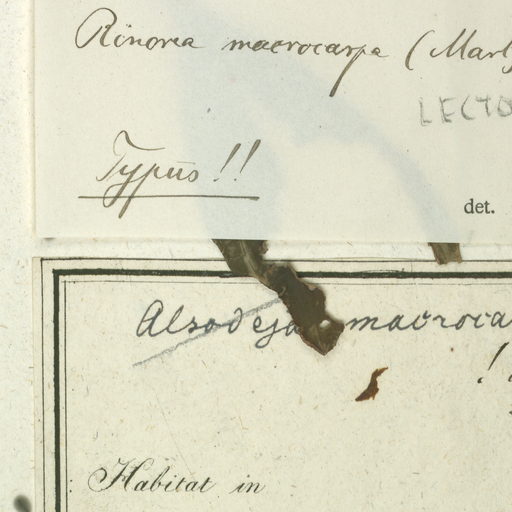 Rinorea macrocarpa (Mart
LECTO
Typus!!
det.
Alsodeja macroca
!
Habitat in